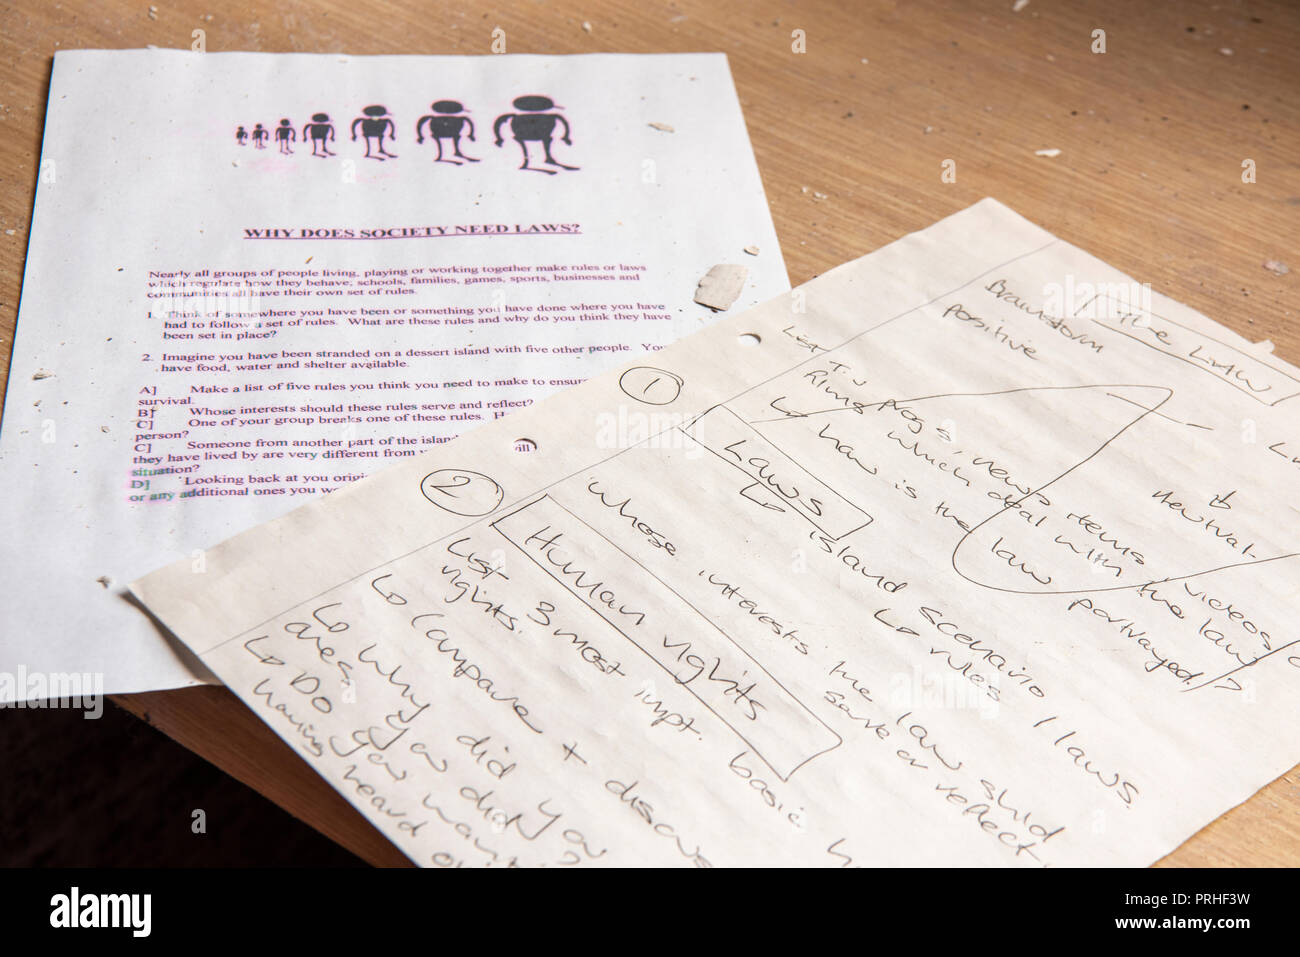 WHY DOES SOCIETY NEED LAWS?
Nearly all groups of people living, playing or working together make rules or laws
which regulate how they behave; schools, families, games, sports, businesses and
communities all have their own set of rules.
1. Think of somewhere you have been or something you have done where you have
had to follow a set of rules. What are these rules and why do you think they have
been set in place?
2. Imagine you have been stranded on a dessert island with five other people. You
have food, water and shelter available.
A] Make a list of five rules you think you need to make to ensure
survival.
B] Whose interests should these rules serve and reflect?
C] One of your group breaks one of these rules.
person?
C] Someone from another part of the island
they have lived by are very different from
situation?
D] Looking back at you
or any additional ones you
The LAW
Brainstorm
positive
neutral
List T.V prog's, news items, videos
Films which deal with the law
↳ how is the law portrayed?
1
Laws
↳ island scenario / laws.
↳ rules
Whose interests the law shld
serve or reflect
2
Human rights
List 3 most impt. basic
rights.
↳ Compare + discuss
↳ Why did you
ones you did?
↳ Do you want
having heard
alamy
Image ID: PRHF3W
www.alamy.com